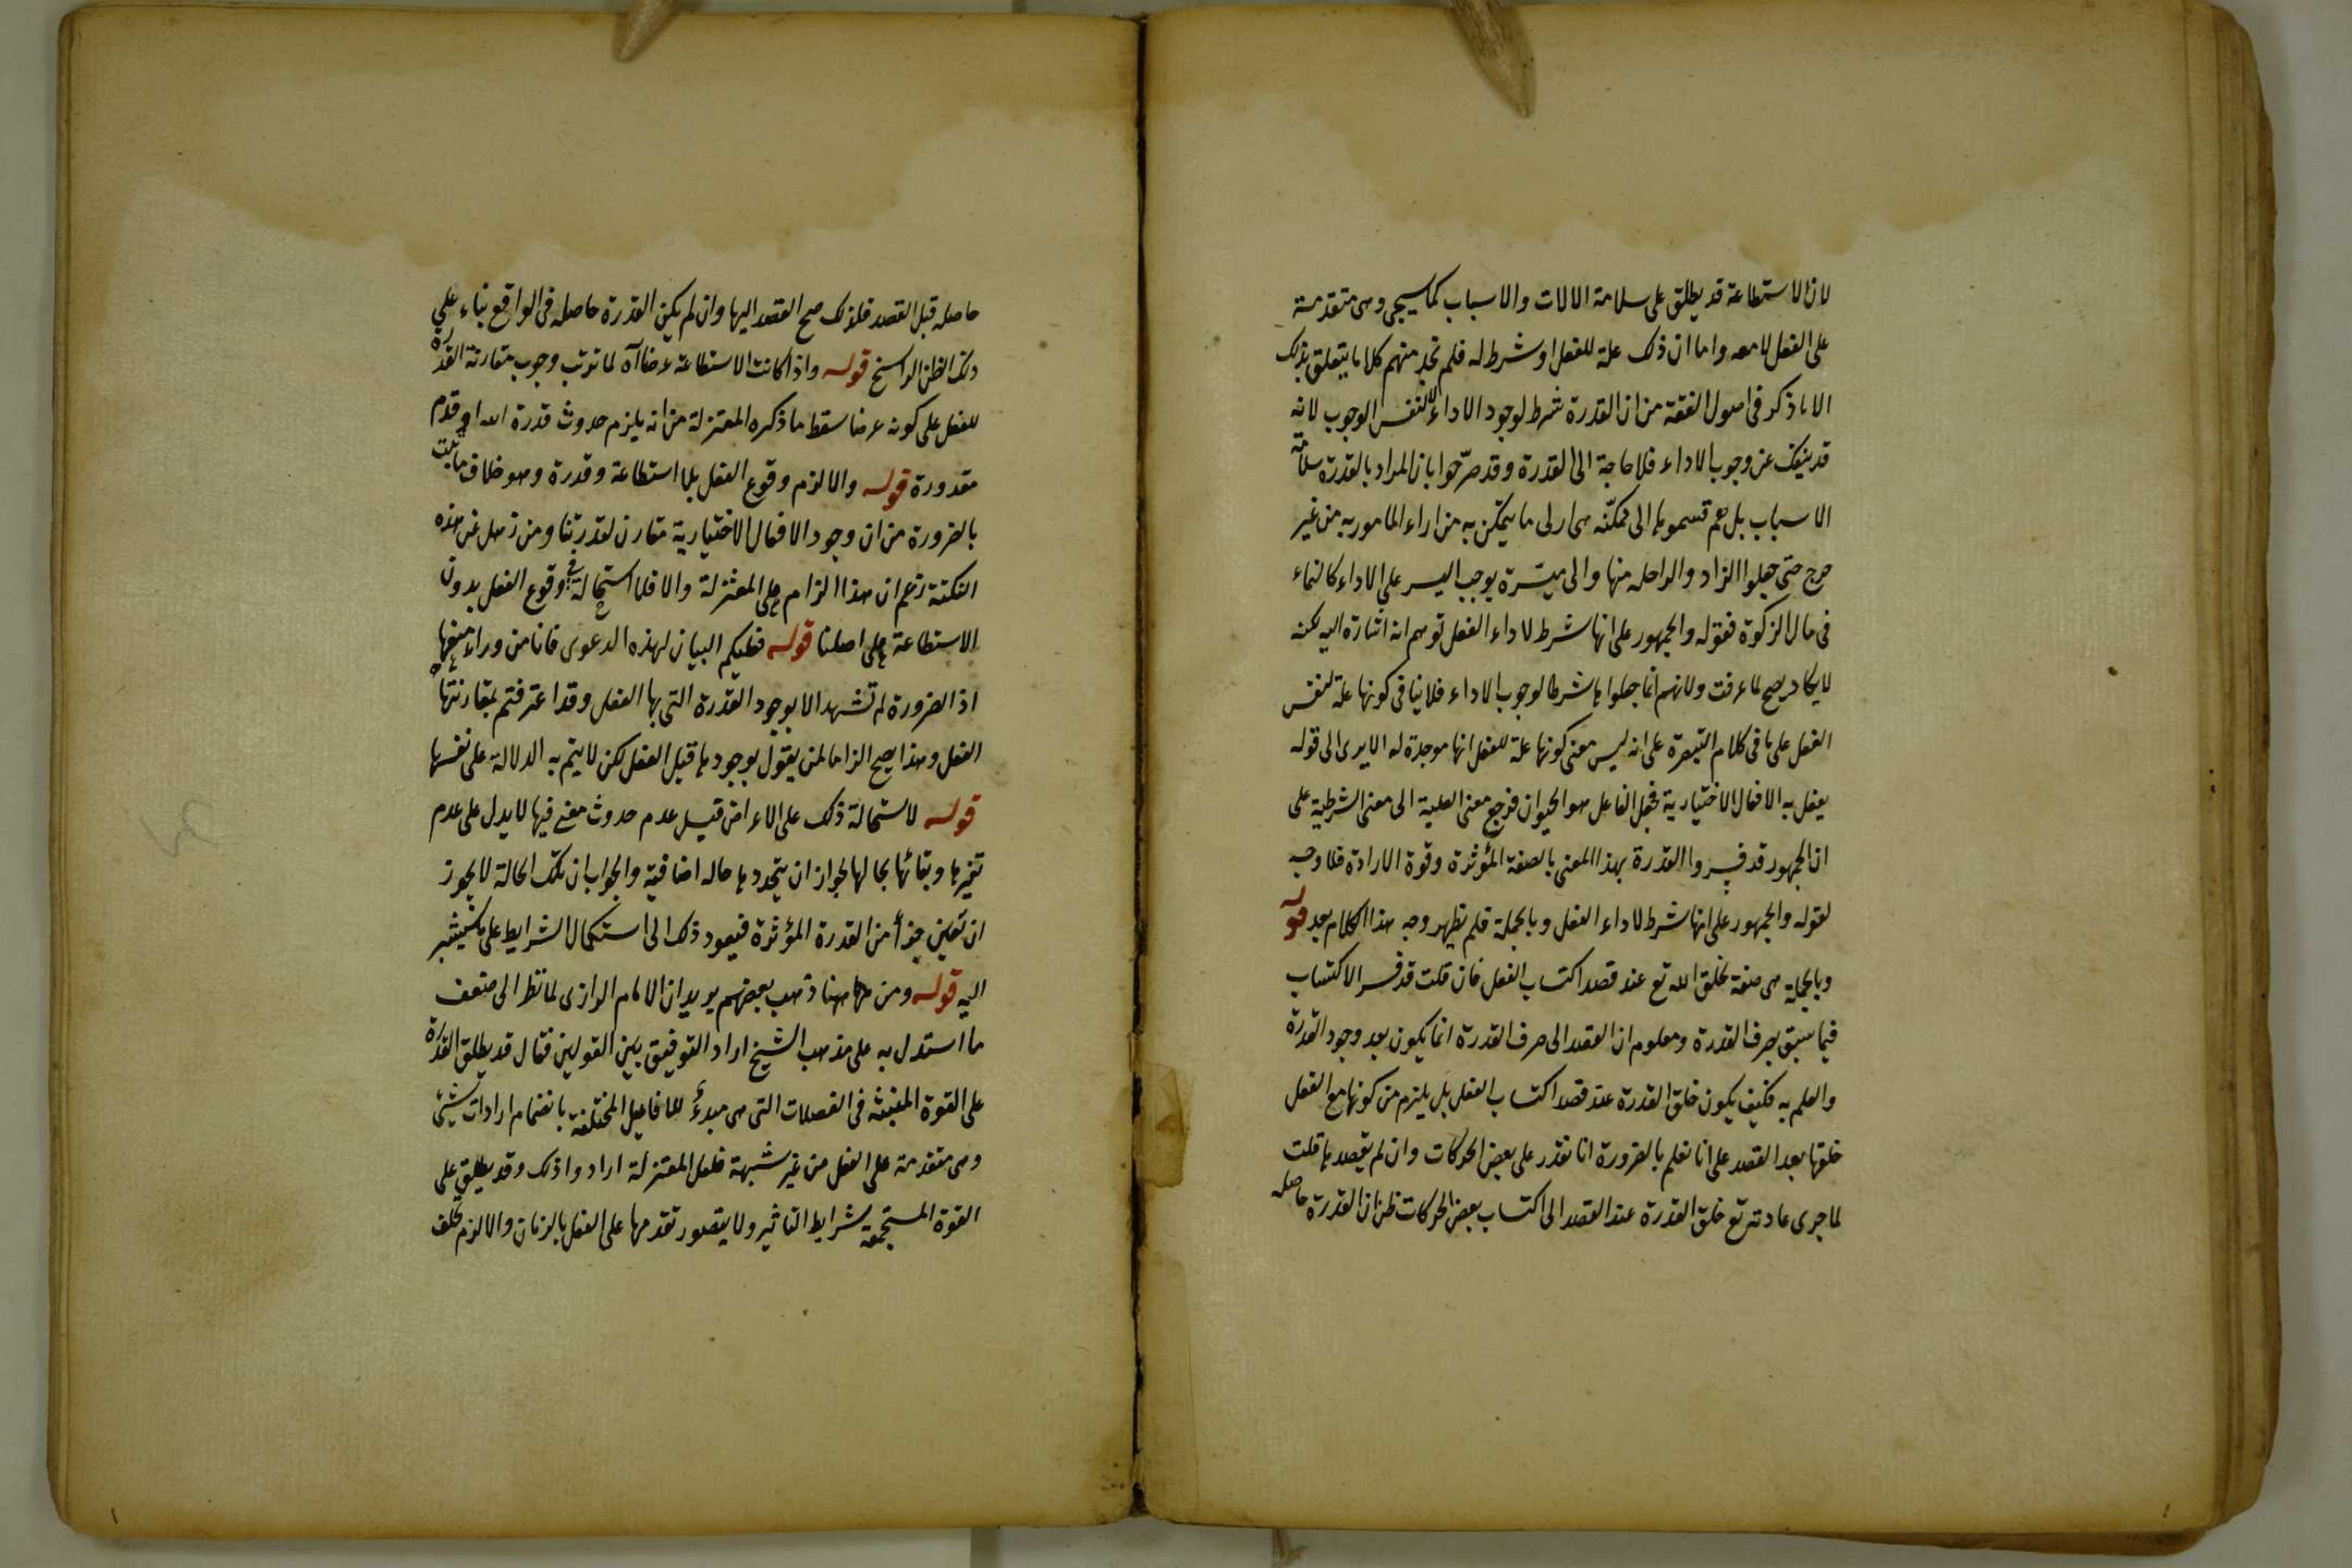 لان الاستطاعة قد يطلق على سلامة الالات والاسباب كما سيجى وهى متقدمة
على الفعل لا معه واما ان ذلك علة للفعل او شرط له فلم نجد منهم كلاما يتعلق بذلك
الا ما ذكر فى اصول الفقة من ان القدرة شرط لوجود الاداء لا لنفس الوجوب لانه
قد ينفك عن وجوب الاداء فلا حاجة الى القدرة وقد صرّحوا بان المراد بالقدرة سلامة
الاسباب بل هم قسموها الى ممكنّه هى ادنى ما يتمكن به من اداء المامور به من غير
حرج حتى جعلوا الزاد والراحله منها والى ميسّرة يوجب اليسر على الاداء كالنماء
فى مال الزكوة فقوله والجمهور على انها شرط لاداء الفعل توهم انه اشارة اليه لكنه
لا يكاد يصح لما عرفت ولانهم انما جعلوها شرطا لوجوب الاداء فلا ينافى كونها علة لنفس
الفعل على ما فى كلام التبصرة على انه ليس معنى كونها علة للفعل انها موجدة له الا يرى الى قوله
يفعل به الافعال الاختيارية فجعل الفاعل هو الحيوان فرجع معنى العلية الى معنى الشرطية على
ان الجمهور قد فسروا القدرة بهذا المعنى بالصفة المؤثرة وقوة الارادة فلا وجه
لقوله والجمهور على انها شرط لاداء الفعل وبالجملة فلم يظهر وجه هذا الكلام بعد قوله
وبالجملة هى صفة يخلق الله تع عند قصد اكتساب الفعل فان قلت قد فسر الاكتساب
فيما سبق بصرف القدرة ومعلوم ان القصد الى صرف القدرة انما يكون بعد وجود القدرة
والعلم به فكيف يكون خلق القدرة عند قصد اكتساب الفعل بل يلزم من كونها مع الفعل
خلقها بعد القصد على انا نعلم بالضرورة انا نقدر على بعض الحركات وان لم يقصدها قلت
لما جرى عادته تع خلق القدرة عند القصد الى اكتساب بعض الحركات ظن ان القدرة حاصله
حاصله قبل القصد فلذلك صح القصد اليها وان لم يكن القدرة حاصله فى الواقع بناء على
ذلك الظن الراسخ قوله واذا كانت الاستطاعة عرضا آه لما ترتب وجوب مقارنة القدرة
للفعل على كونه عرضا سقط ما ذكره المعتزلة من انه يلزم حدوث قدرة الله او قدم
مقدورة قوله والا لزم وقوع الفعل بلا استطاعة وقدرة وهو خلاف ما ثبت
بالضرورة من ان وجود الافعال الاختيارية مقارن لقدرتنا ومن ذهل عن هذه
النكتة زعم ان هذا الزام على المعتزلة والا فلا استحالة فى وقوع الفعل بدون
الاستطاعة على اصلنا قوله فعليكم البيان لهذه الدعوى فانا من وراء منعها
اذ الضرورة لم تشهد الا بوجود القدرة التى بها الفعل وقد اعترفتم بمقارنتها
الفعل وهذا يصح الزاما لمن يقول بوجودها قبل الفعل لكن لا يتم به الدلالة على نفسها
قوله لاستحالة ذلك على الاعراض قيل عدم حدوث معنى فيها لا يدل على عدم
تغيرها وبقائها بحالها لجواز ان يتجدد بها حاله اضافية والجواب ان تلك الحالة لا يجوز
ان تكون جزأ من القدرة المؤثرة فيعود ذلك الى استكمال الشرايط على ما سيشير
اليه قوله ومن ههنا ذهب بعضهم يريد ان الامام الرازى لما نظر الى ضعف
ما استدل به على مذهب الشيخ اراد التوفيق بين القولين فقال قد يطلق القدرة
على القوة المنبثة فى العضلات التى هى مبدءُ للافاعيل المختلفة بانضمام ارادات شتى
وهى متقدمة على الفعل من غير شبهة فلعل المعتزلة ارادوا ذلك وقد يطلق على
القوة المستجمعة شرايط التاثير ولا يتصور تقدمها على الفعل بالزمان والا لزم تخلف